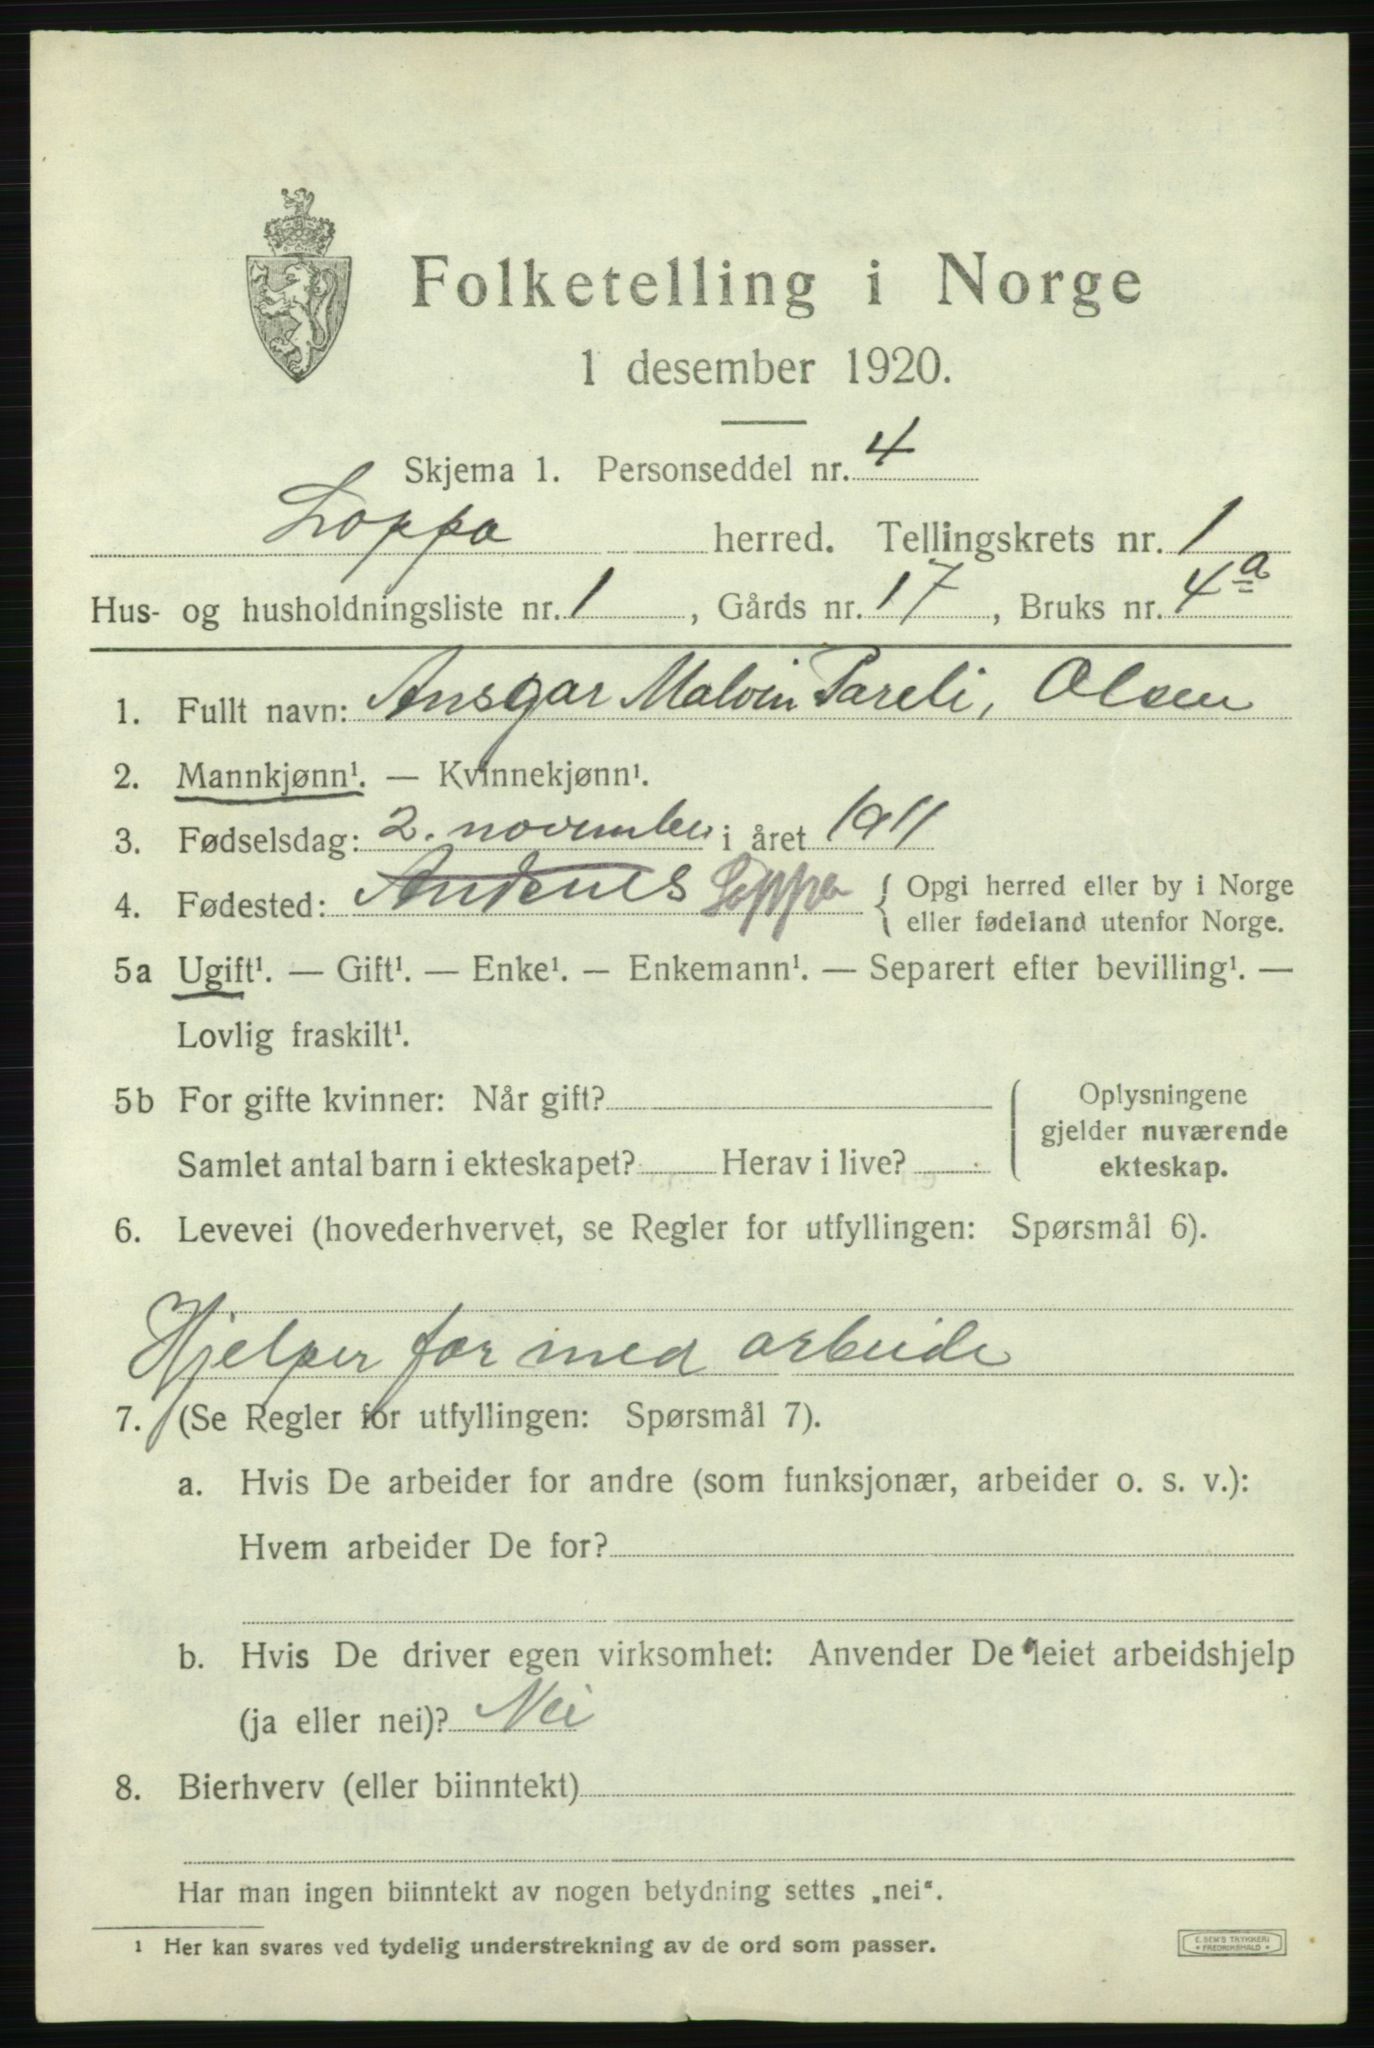 Folketelling i Norge
1 desember 1920.
Skjema 1. Personseddel nr. 4
Loppa herred. Tellingskrets nr. 1
Hus- og husholdningsliste nr. 1, Gårds nr. 17, Bruks nr. 4a
1. Fullt navn: Ansgar Malvin Pareli, Olsen
2. Mannkjønn¹. — Kvinnekjønn¹.
3. Fødselsdag: 2. november i året 1911
4. Fødested: Andenes Loppa { Opgi herred eller by i Norge
eller fødeland utenfor Norge.
5a Ugift¹. — Gift¹. — Enke¹. — Enkemann¹. — Separert efter bevilling¹. —
Lovlig fraskilt¹.
5b For gifte kvinner: Når gift?
Oplysningene
gjelder nuværende
ekteskap.
Samlet antal barn i ekteskapet? Herav i live?
6. Levevei (hovederhvervet, se Regler for utfyllingen: Spørsmål 6).
Hjelper far med arbeide
7. (Se Regler for utfyllingen: Spørsmål 7).
a. Hvis De arbeider for andre (som funksjonær, arbeider o. s. v.):
Hvem arbeider De for?
b. Hvis De driver egen virksomhet: Anvender De leiet arbeidshjelp
(ja eller nei)? Nei
8. Bierhverv (eller biinntekt)
Har man ingen biinntekt av nogen betydning settes „nei“.
¹ Her kan svares ved tydelig understrekning av de ord som passer.
E. SEM'S TRYKKERI
* FREDRIKSHALD *